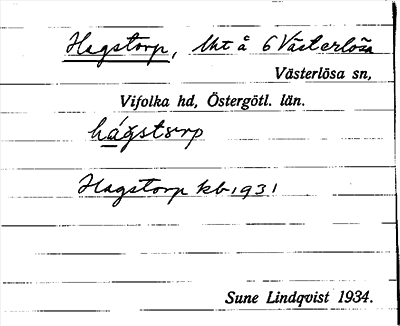 Hagstorp, lht å 6 Västerlösa
Västerlösa sn,
Vifolka hd, Östergötl. län.
hágstorp
Hagstorp kb 1931
Sune Lindqvist 1934.